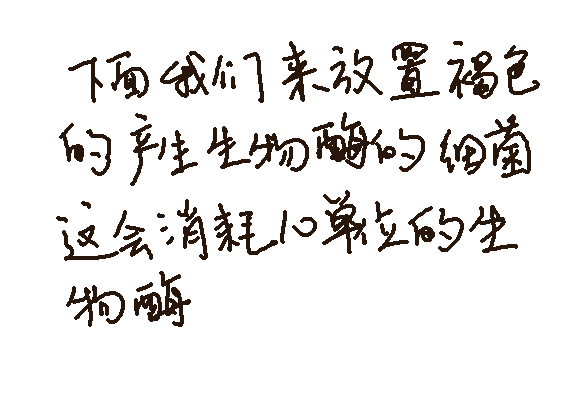 下面我们来放置褐色
的产生生物酶的细菌
这会消耗10单位的生
物酶